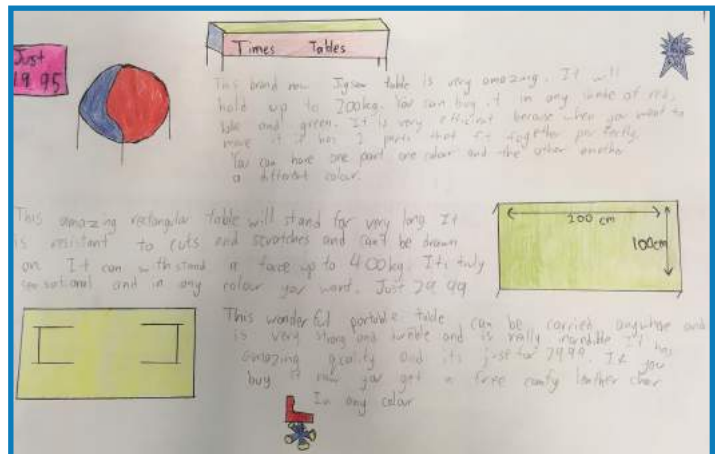 Just
19.95
Times Tables
This brand new Jigsaw table is very amazing. It will
hold up to 200kg. You can buy it in any shade of red,
blue and green. It is very efficient because when you want to
move it it has 2 parts that fit together perfectly.
You can have one part one colour and the other another
a different colour.
This amazing rectangular table will stand for very long It
is resistant to cuts and scratches and can't be drawn
on It can withstand a force up to 400kg. Its truly
sensational and in any colour you want. Just 29.99
200 cm
100cm
This wonderful portable table can be carried anywhere and
is very strong and and is really incredible It has
amazing quality and its just for 79.99. If you
buy it now you get a free comfy leather chair
In any colour